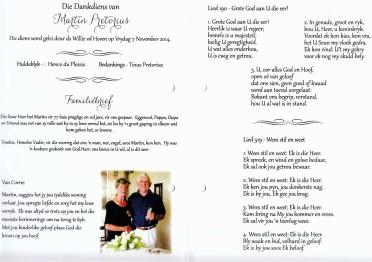 Die Dankdiens van
Martin Pretorius
Die diens word gelei deur ds Willie vd Hoven op Vrydag 7 November 2014.
Huldeblyk - : Henco du Plessis Bedankings - Tinus Pretorius
Familiebrief
Die liewe Heer het Martin vir 73 baie pragtige en vol jare, vir ons gegee. Eggenoot, Pappa, Oupa
en Vriend was net van sy rolle wat hy in sy lewe vervul het, en los hy 'n groot gaping in almal wat
hom geken het, se lewens.
Dankie, Hemelse Vader, vir die voorreg dat ons 'n man, soos Martin kon hê. Hy was
'n kosbare geskenk van God Heer, ons is U wil, al is dit seer.
Van Corrie:
Martin, saggies het jy jou tydelike woning
verlaat. Jou opregte liefde en sorg het my lewe
verryk. Ek was altyd so trots op jou en het die
mooiste herinneringe om na terug te kyk.
Met jou kinderlike geloof plaas God die
kroon op jou hoof.
Lied 190 - Grote God aan U die eer!
1. Grote God aan U die eer!
Heerlik is waar U regeer;
hemels is u majesteit;
heilig U geregtigheid.
U wat alles onderhou,
U is ewig en getrou.
2. In genade, groot en ryk,
hou U, Heer, u koninkryk.
Voordat ek kon kies, kon vra,
het U Seun my vloek gedra.
Ek kon vir U niks gee;
U't vir my skuld bely.
3. U, o alles God en Hoof,
open oë van geloof
dat ons sien, geen goed of kwaad
word aan toeval oorgelaat:
Bekoms ons begrip, verstand,
hou U al wat is in stand.
Lied 519 - Wees stil en weet
1. Wees stil en weet: Ek is die Heer.
Ek spreek, en wind en golwe bedaar,
Ek sal ook jou getrou bewaar.
2. Wees stil en weet: Ek is die Heer.
Ek ken jou pyn, jou donkerste nag.
Ek is by jou, Ek gee jou krag.
3. Wees stil en weet: Ek is die Heer.
Kom bring na My jou kommer en vrees.
Ek sal vir jou 'n toevlug wees.
4. Wees stil en weet: Ek is die Heer.
Bly waak en bid, volhard in geloof.
Ek is by jou soos Ek beloof.